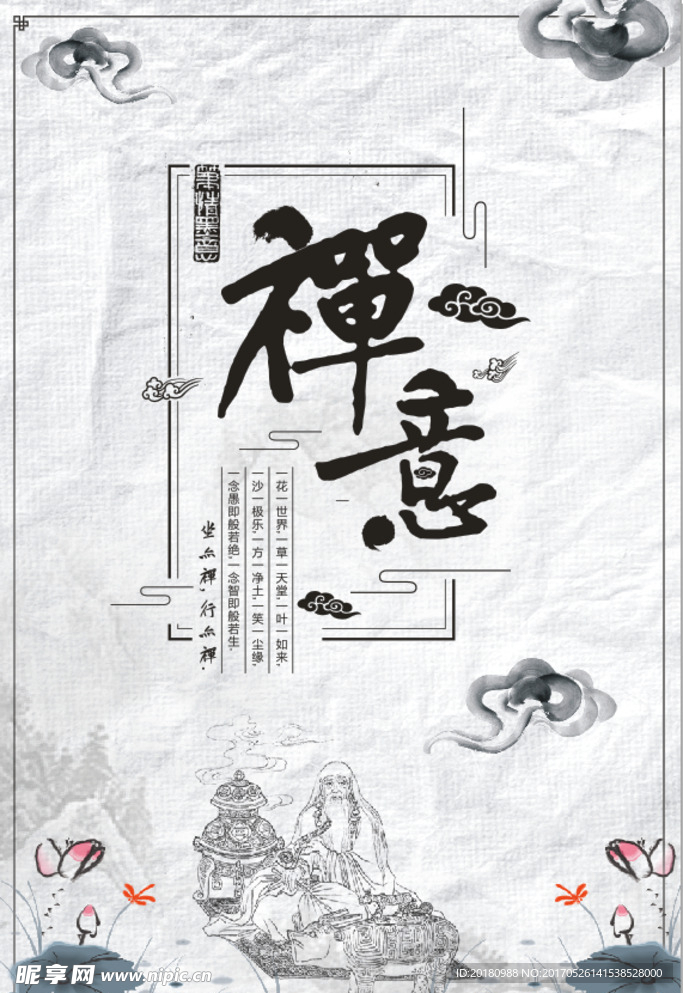 筆情墨意
禪意
一花一世界,一草一天堂,一叶一如来,
一沙一极乐,一方一净土,一笑一尘缘,
一念愚即般若绝,一念智即般若生.
坐亦禪,行亦禪.
昵享网 www.nipic.cn
ID:20180988 NO:20170526141538528000